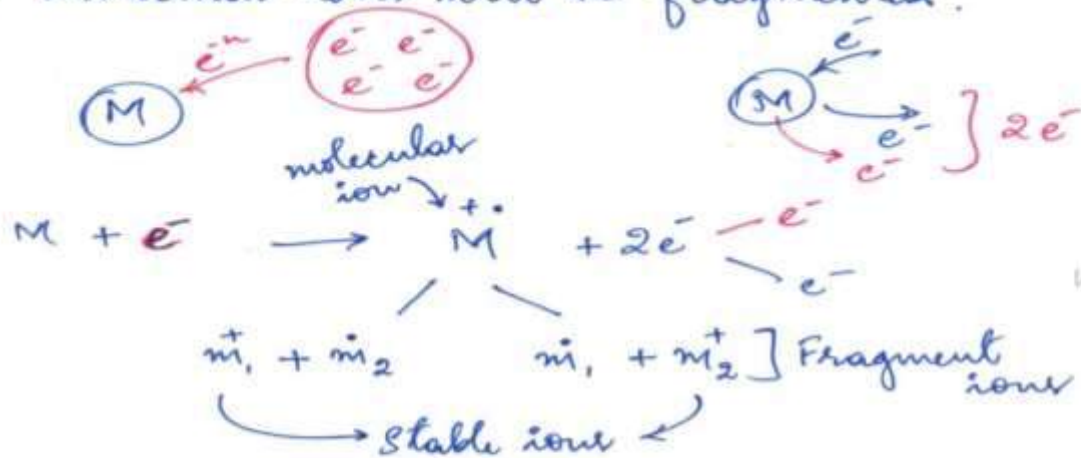 fragmented.
e⁻ⁿ e⁻ e⁻ e⁻ e⁻ M
e⁻ M e⁻ e⁻ ] 2e⁻
molecular
ion
M + e⁻ → M⁺· + 2e⁻ e⁻ e⁻
m₁⁺ + ṁ₂ ṁ₁ + m₂⁺ ] Fragment
ions
Stable ions